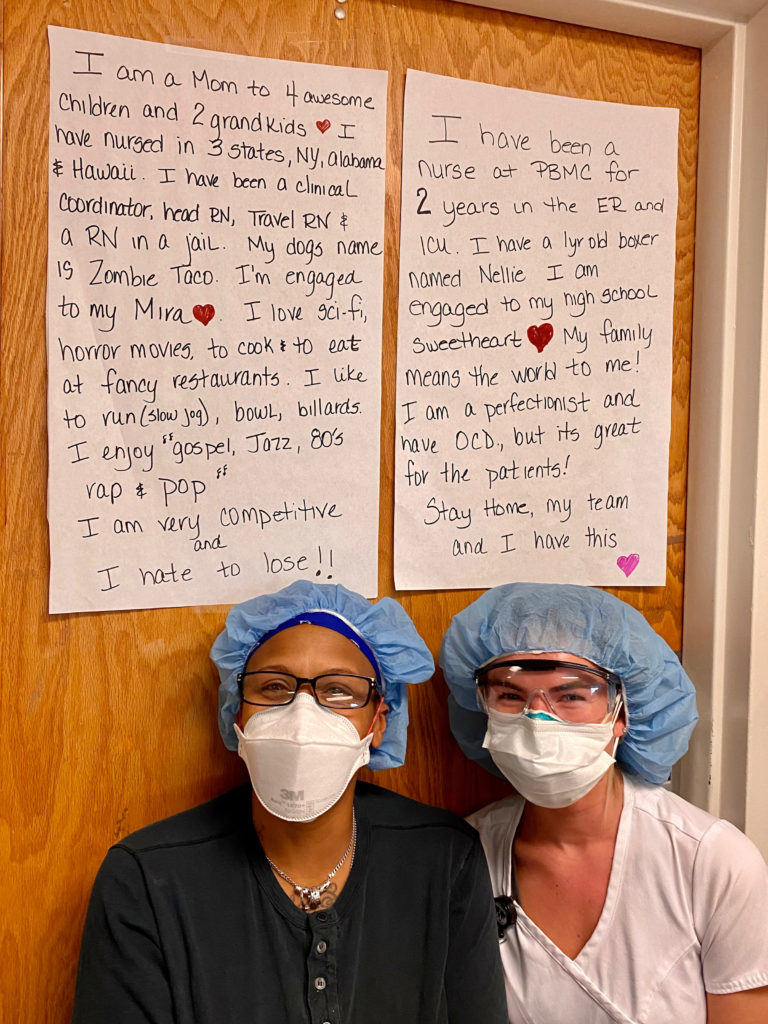 I am a Mom to 4 awesome
children and 2 grandkids ♥ I
have nursed in 3 states, NY, alabama
& Hawaii. I have been a clinical
coordinator, head RN, Travel RN &
a RN in a jail. My dogs name
is Zombie Taco. I'm engaged
to my Mira ♥. I love sci-fi,
horror movies, to cook & to eat
at fancy restaurants. I like
to run (slow jog), bowl, billards.
I enjoy "gospel, Jazz, 80's
rap & pop"
I am very competitive
and
I hate to lose!!
I have been a
nurse at PBMC for
2 years in the ER and
ICU. I have a 1yr old boxer
named Nellie I am
engaged to my high school
sweetheart ♥ My family
means the world to me!
I am a perfectionist and
have OCD, but its great
for the patients!
Stay Home, my team
and I have this
3M